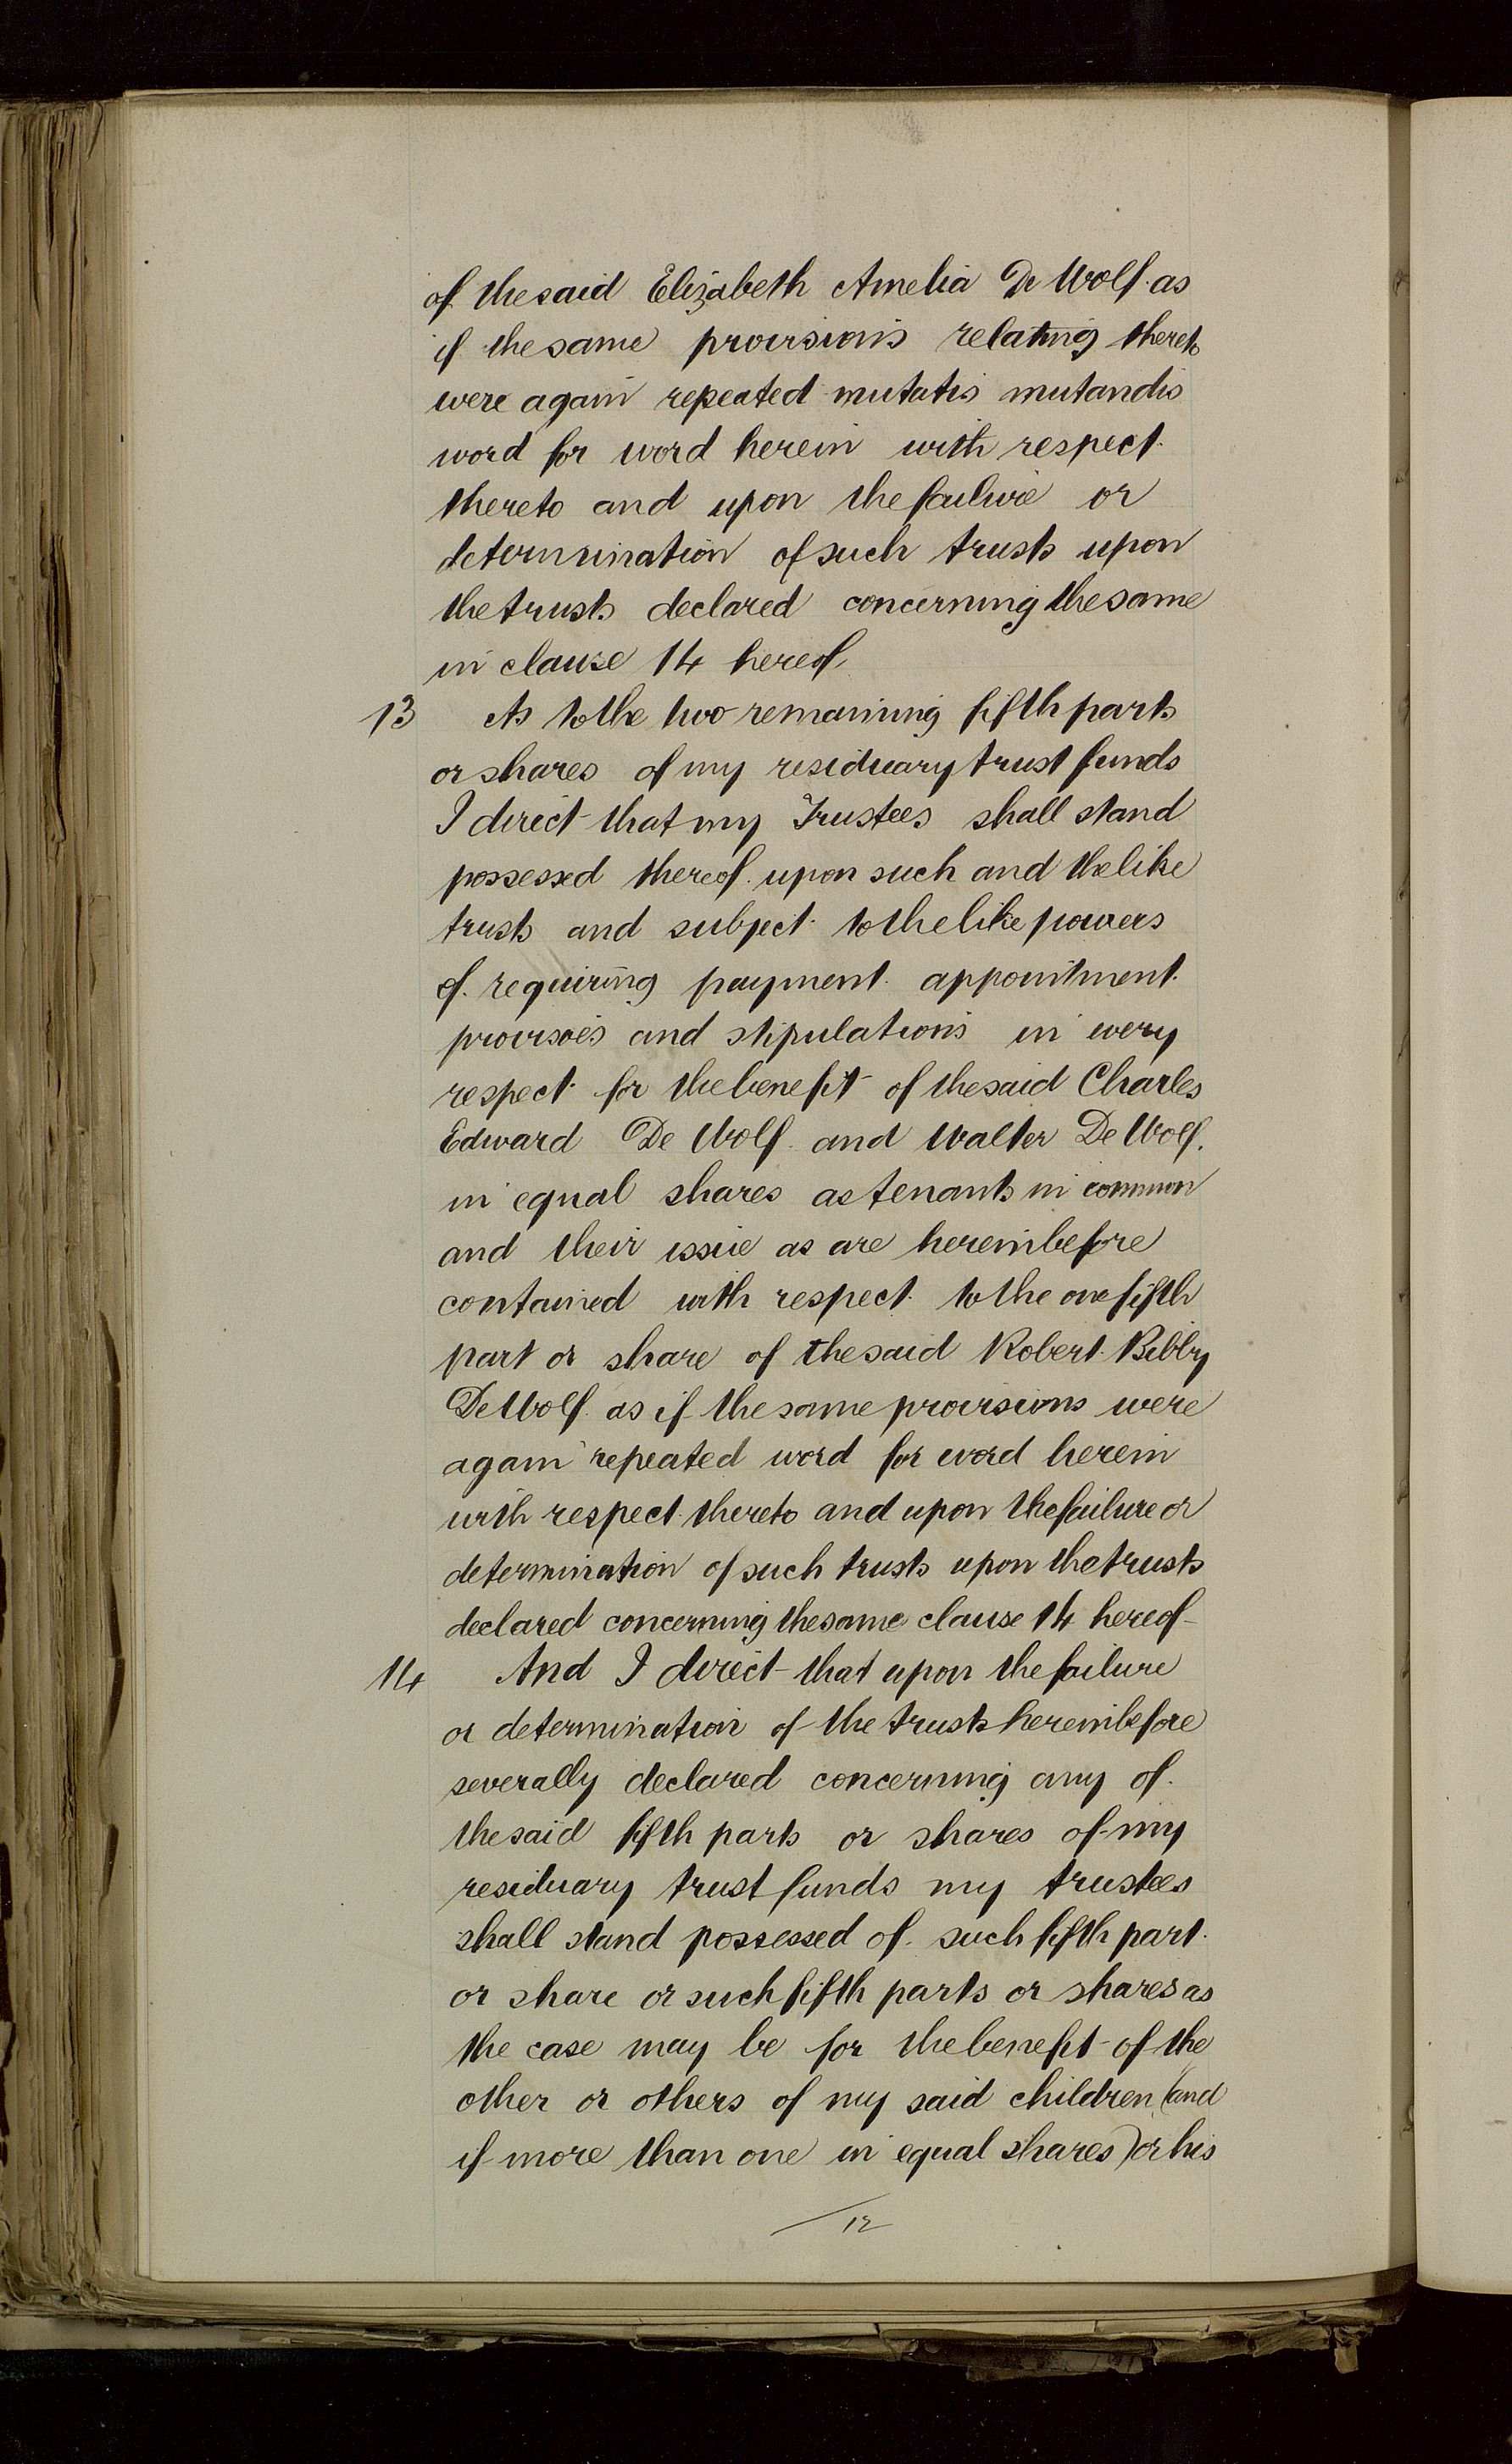 of the said Elizabeth Amelia De Wolf as
if the same provisions relating thereto
were again repeated mutatis mutandis
word for word herein with respect
thereto and upon the failure or
determination of such trusts upon
the trusts declared concerning the same
in clause 14 hereof
13 As to the two remaining fifth parts
or shares of my residuary trust funds
I direct that my Trustees shall stand
possessed thereof upon such and the like
trusts and subject to the like powers
of requiring payment appointment
provisoes and stipulations in every
respect for the benefit of the said Charles
Edward De Wolf and Walter De Wolf
in equal shares as tenants in common
and their issue as are hereinbefore
contained with respect to the one fifth
part or share of the said Robert Bibby
De Wolf as if the same provisions were
again repeated word for word herein
with respect thereto and upon the failure or
determination of such trusts upon the trusts
declared concerning the same clause 14 hereof
14 And I direct that upon the failure
or determination of the trusts hereinbefore
severally declared concerning any of
the said fifth parts or shares of my
residuary trust funds my trustees
shall stand possessed of such fifth part
or share or such fifth parts or shares as
the case may be for the benefit of the
other or others of my said children (and
if more than one in equal shares) or his
12